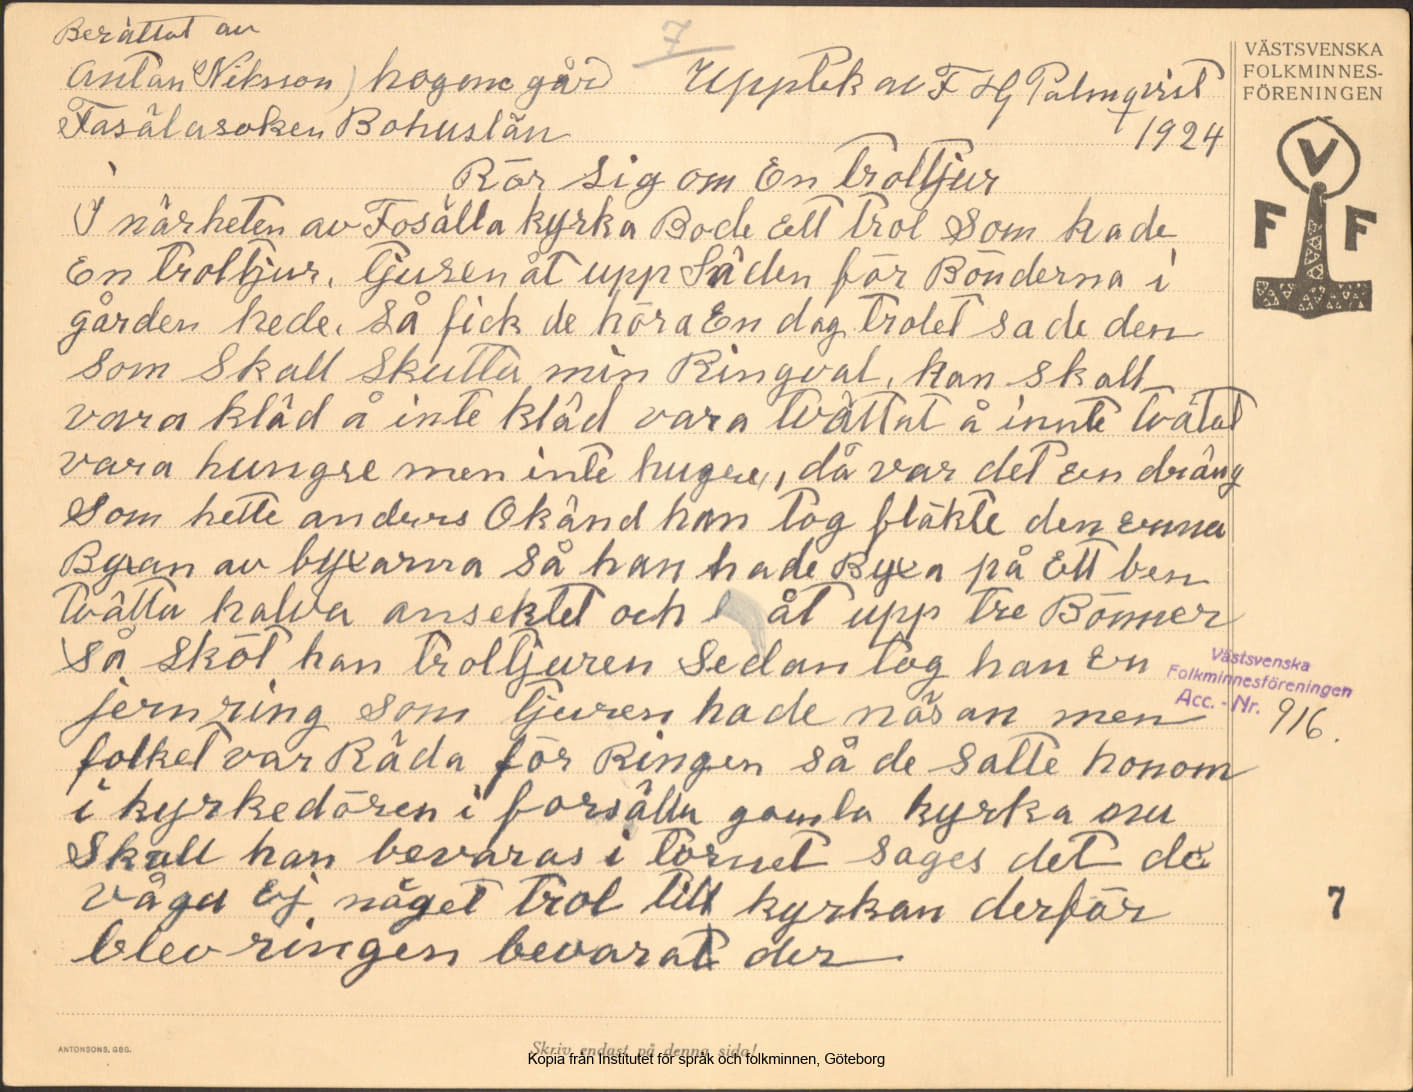 Berättat av
Antan Niksson) hogene gård
Fasäla soken Bohuslän
7
Upptek av F Hj Palmqvist
1924
Rör Sig om En Trolltjur
I närheten av Fosälla kyrka Bode Ett Trol Som hade
En Trolltjur. Tjuren åt upp Säden för Bönderna i
gården hede. Så fick de höra En dag Trolet sade den
Som Skall Skutta min Ringval, han skall
vara kläd å inte kläd vara tvättat å innte tvätat
vara hungre men inte hugre, då var det En dräng
Som hette anders Okänd han tog fläkte den Enna
Byxan av byxarna Så han hade Byxa på Ett ben
tvätta halva ansektet och åt upp tre Bönner
Så Sköt han trolltjuren Sedan tog han En
jernring som Tjuren hade näsan men
folket var Räda för Ringen så de satte honom
i kyrkedören i forsälla gamla kyrka nu
Skall han bevaras i tornet sages det de
våga Ej något Trol till kyrkan derför
blev ringen bevarat der
VÄSTSVENSKA
FOLKMINNES-
FÖRENINGEN
V
F F
Västsvenska
Folkminnesföreningen
Acc. - Nr. 916.
7
ANTONSONS, GBG.
Skriv endast på denna sida!
Kopia från Institutet för språk och folkminnen, Göteborg